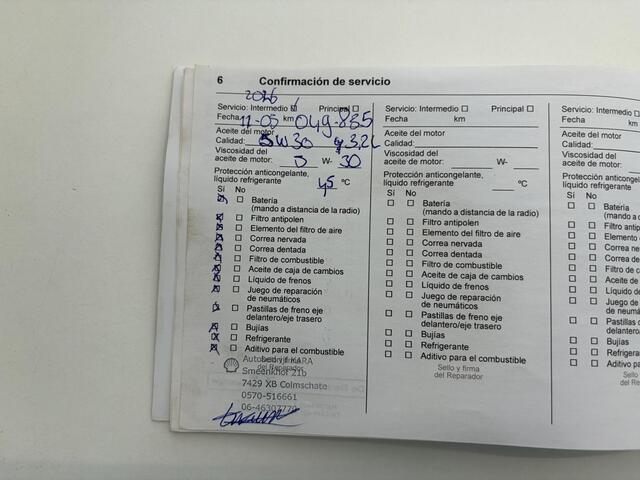 6 Confirmación de servicio
2026
Servicio: Intermedio ☒ Principal ☐
Fecha 11-05 km 049-835
Aceite del motor
Calidad: 5W30 3,2L
Viscosidad del
aceite de motor: 5 W- 30
Protección anticongelante,
líquido refrigerante 45 °C
Sí No
☒ ☐ Batería
(mando a distancia de la radio)
☒ ☐ Filtro antipolen
☒ ☐ Elemento del filtro de aire
☒ ☐ Correa nervada
☒ ☐ Correa dentada
☒ ☐ Filtro de combustible
☒ ☐ Aceite de caja de cambios
☒ ☐ Líquido de frenos
☒ ☐ Juego de reparación
de neumáticos
☒ ☐ Pastillas de freno eje
delantero/eje trasero
☒ ☐ Bujías
☒ ☐ Refrigerante
☒ ☐ Aditivo para el combustible
Sello y firma
del Reparador
Autobedrijf KARA
Smeenkhof 21b
7429 XB Colmschate
0570-516661
Servicio: Intermedio ☐ Principal ☐
Fecha km
Aceite del motor
Calidad:
Viscosidad del
aceite de motor: W-
Protección anticongelante,
líquido refrigerante °C
Sí No
☐ ☐ Batería
(mando a distancia de la radio)
☐ ☐ Filtro antipolen
☐ ☐ Elemento del filtro de aire
☐ ☐ Correa nervada
☐ ☐ Correa dentada
☐ ☐ Filtro de combustible
☐ ☐ Aceite de caja de cambios
☐ ☐ Líquido de frenos
☐ ☐ Juego de reparación
de neumáticos
☐ ☐ Pastillas de freno eje
delantero/eje trasero
☐ ☐ Bujías
☐ ☐ Refrigerante
☐ ☐ Aditivo para el combustible
Sello y firma
del Reparador
Servicio: Intermedio
Fecha
Aceite del motor
Calidad:
Viscosidad del
aceite de motor:
Protección anticongelante,
líquido refrigerante
Sí No
☐ ☐ Batería
(mando a
☐ ☐ Filtro antip
☐ ☐ Elemento
☐ ☐ Correa ne
☐ ☐ Correa de
☐ ☐ Filtro de c
☐ ☐ Aceite de
☐ ☐ Líquido de
☐ ☐ Juego de
de neumá
☐ ☐ Pastillas d
delantero/
☐ ☐ Bujías
☐ ☐ Refrigera
☐ ☐ Aditivo pa
Sello
del R